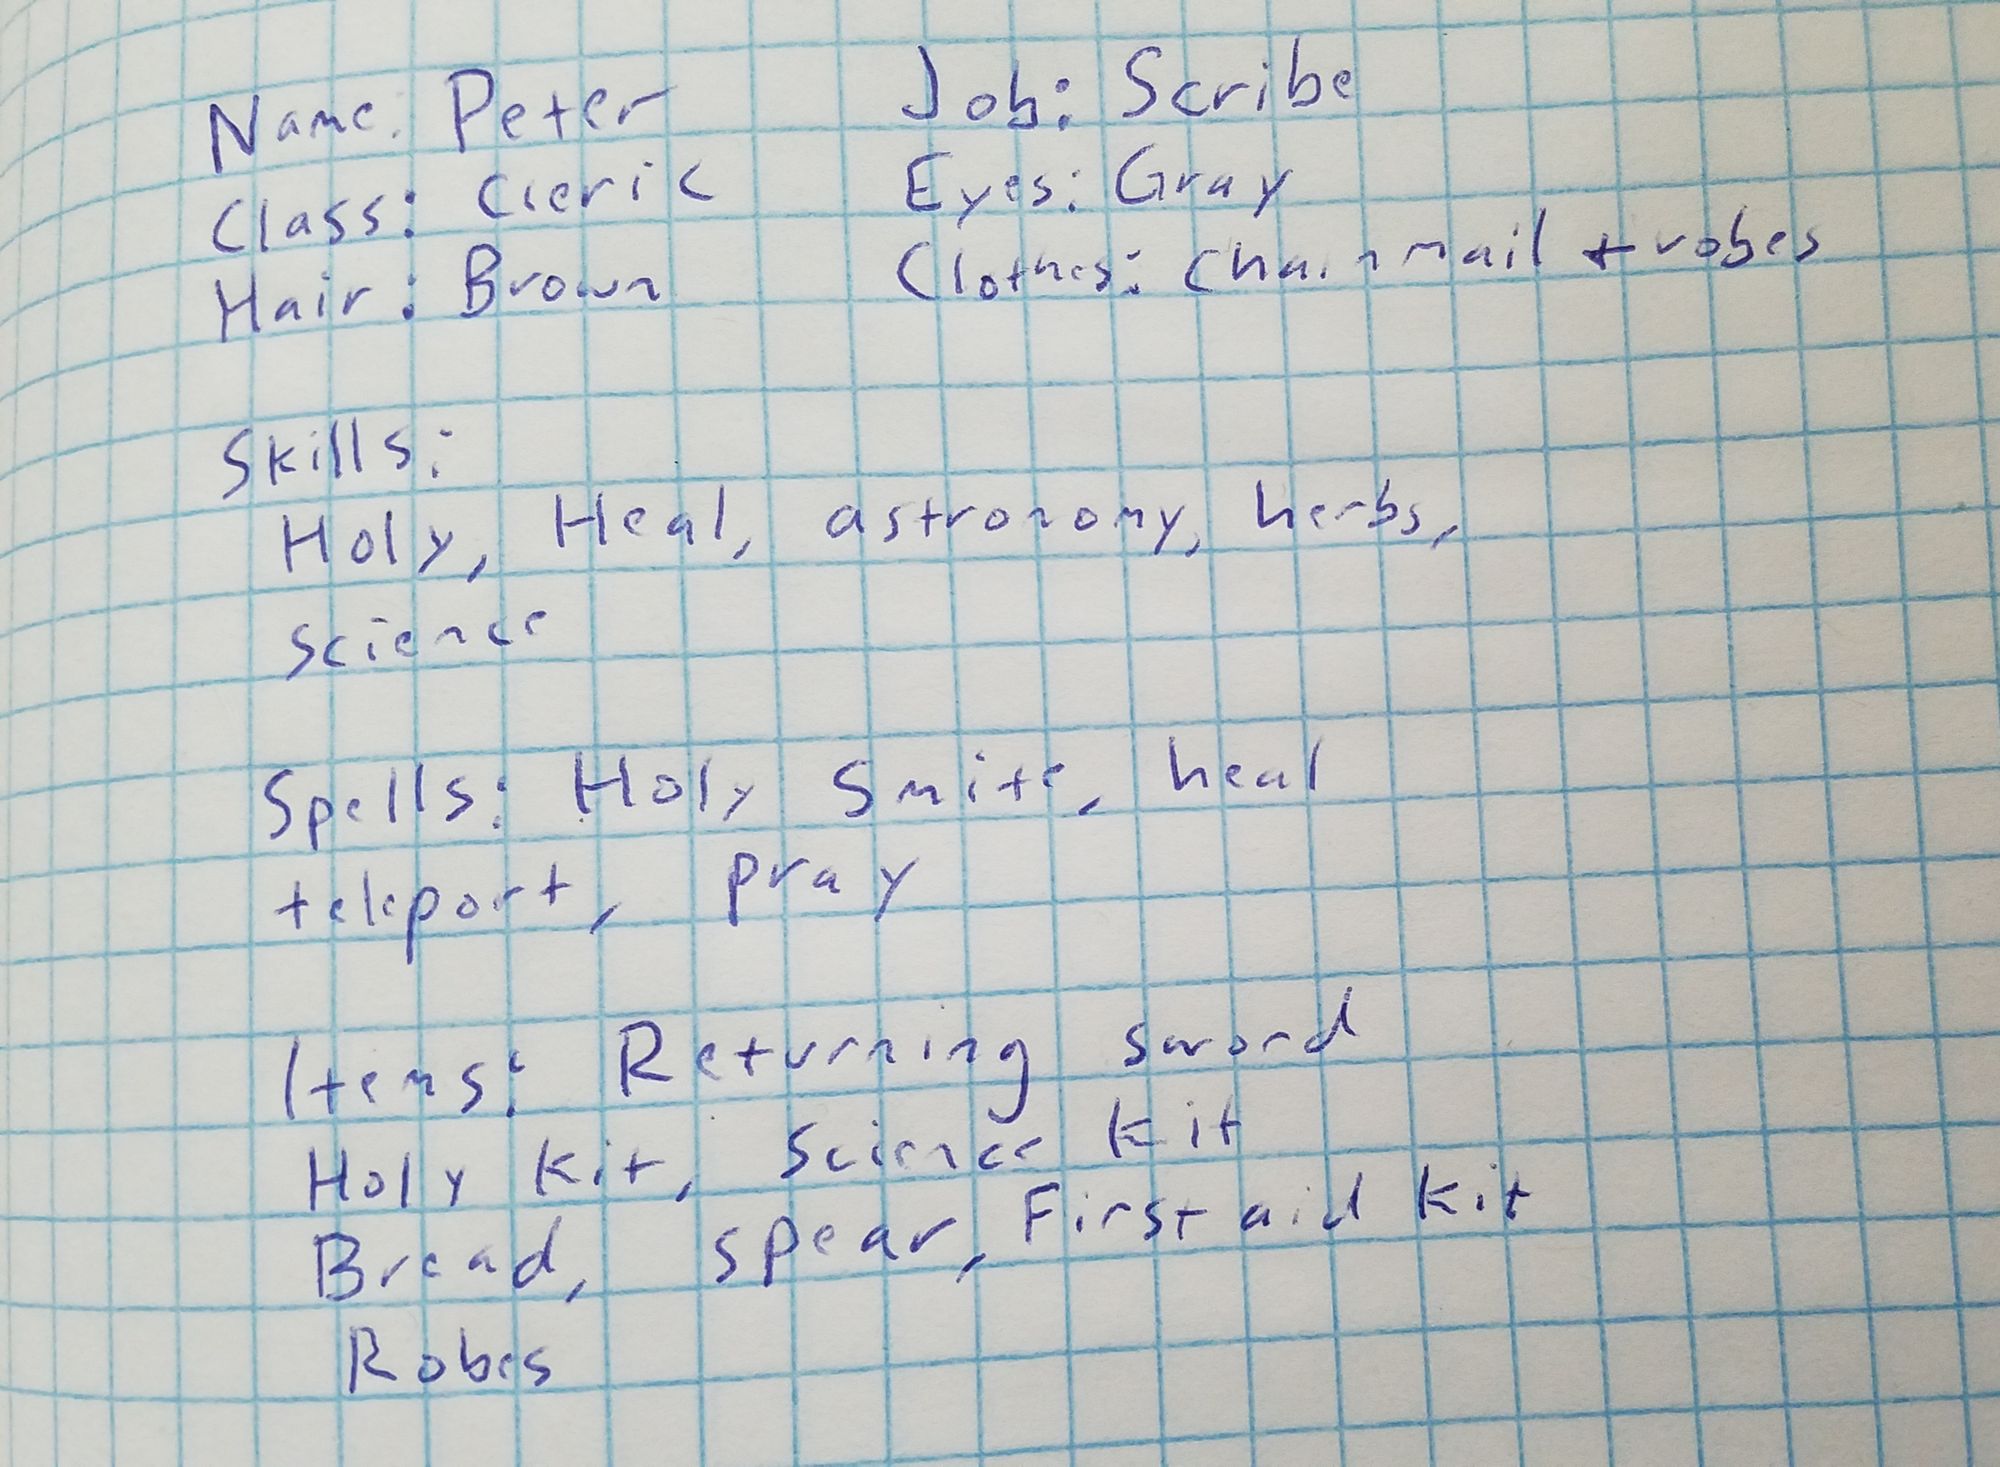 Name: Peter Job: Scribe
Class: Cleric Eyes: Gray
Hair: Brown Clothes: chainmail + robes
Skills:
Holy, Heal, astronomy, herbs,
science
Spells: Holy Smite, heal
teleport, pray
Items: Returning sword
Holy kit, Science kit
Bread, spear, First aid kit
Robes